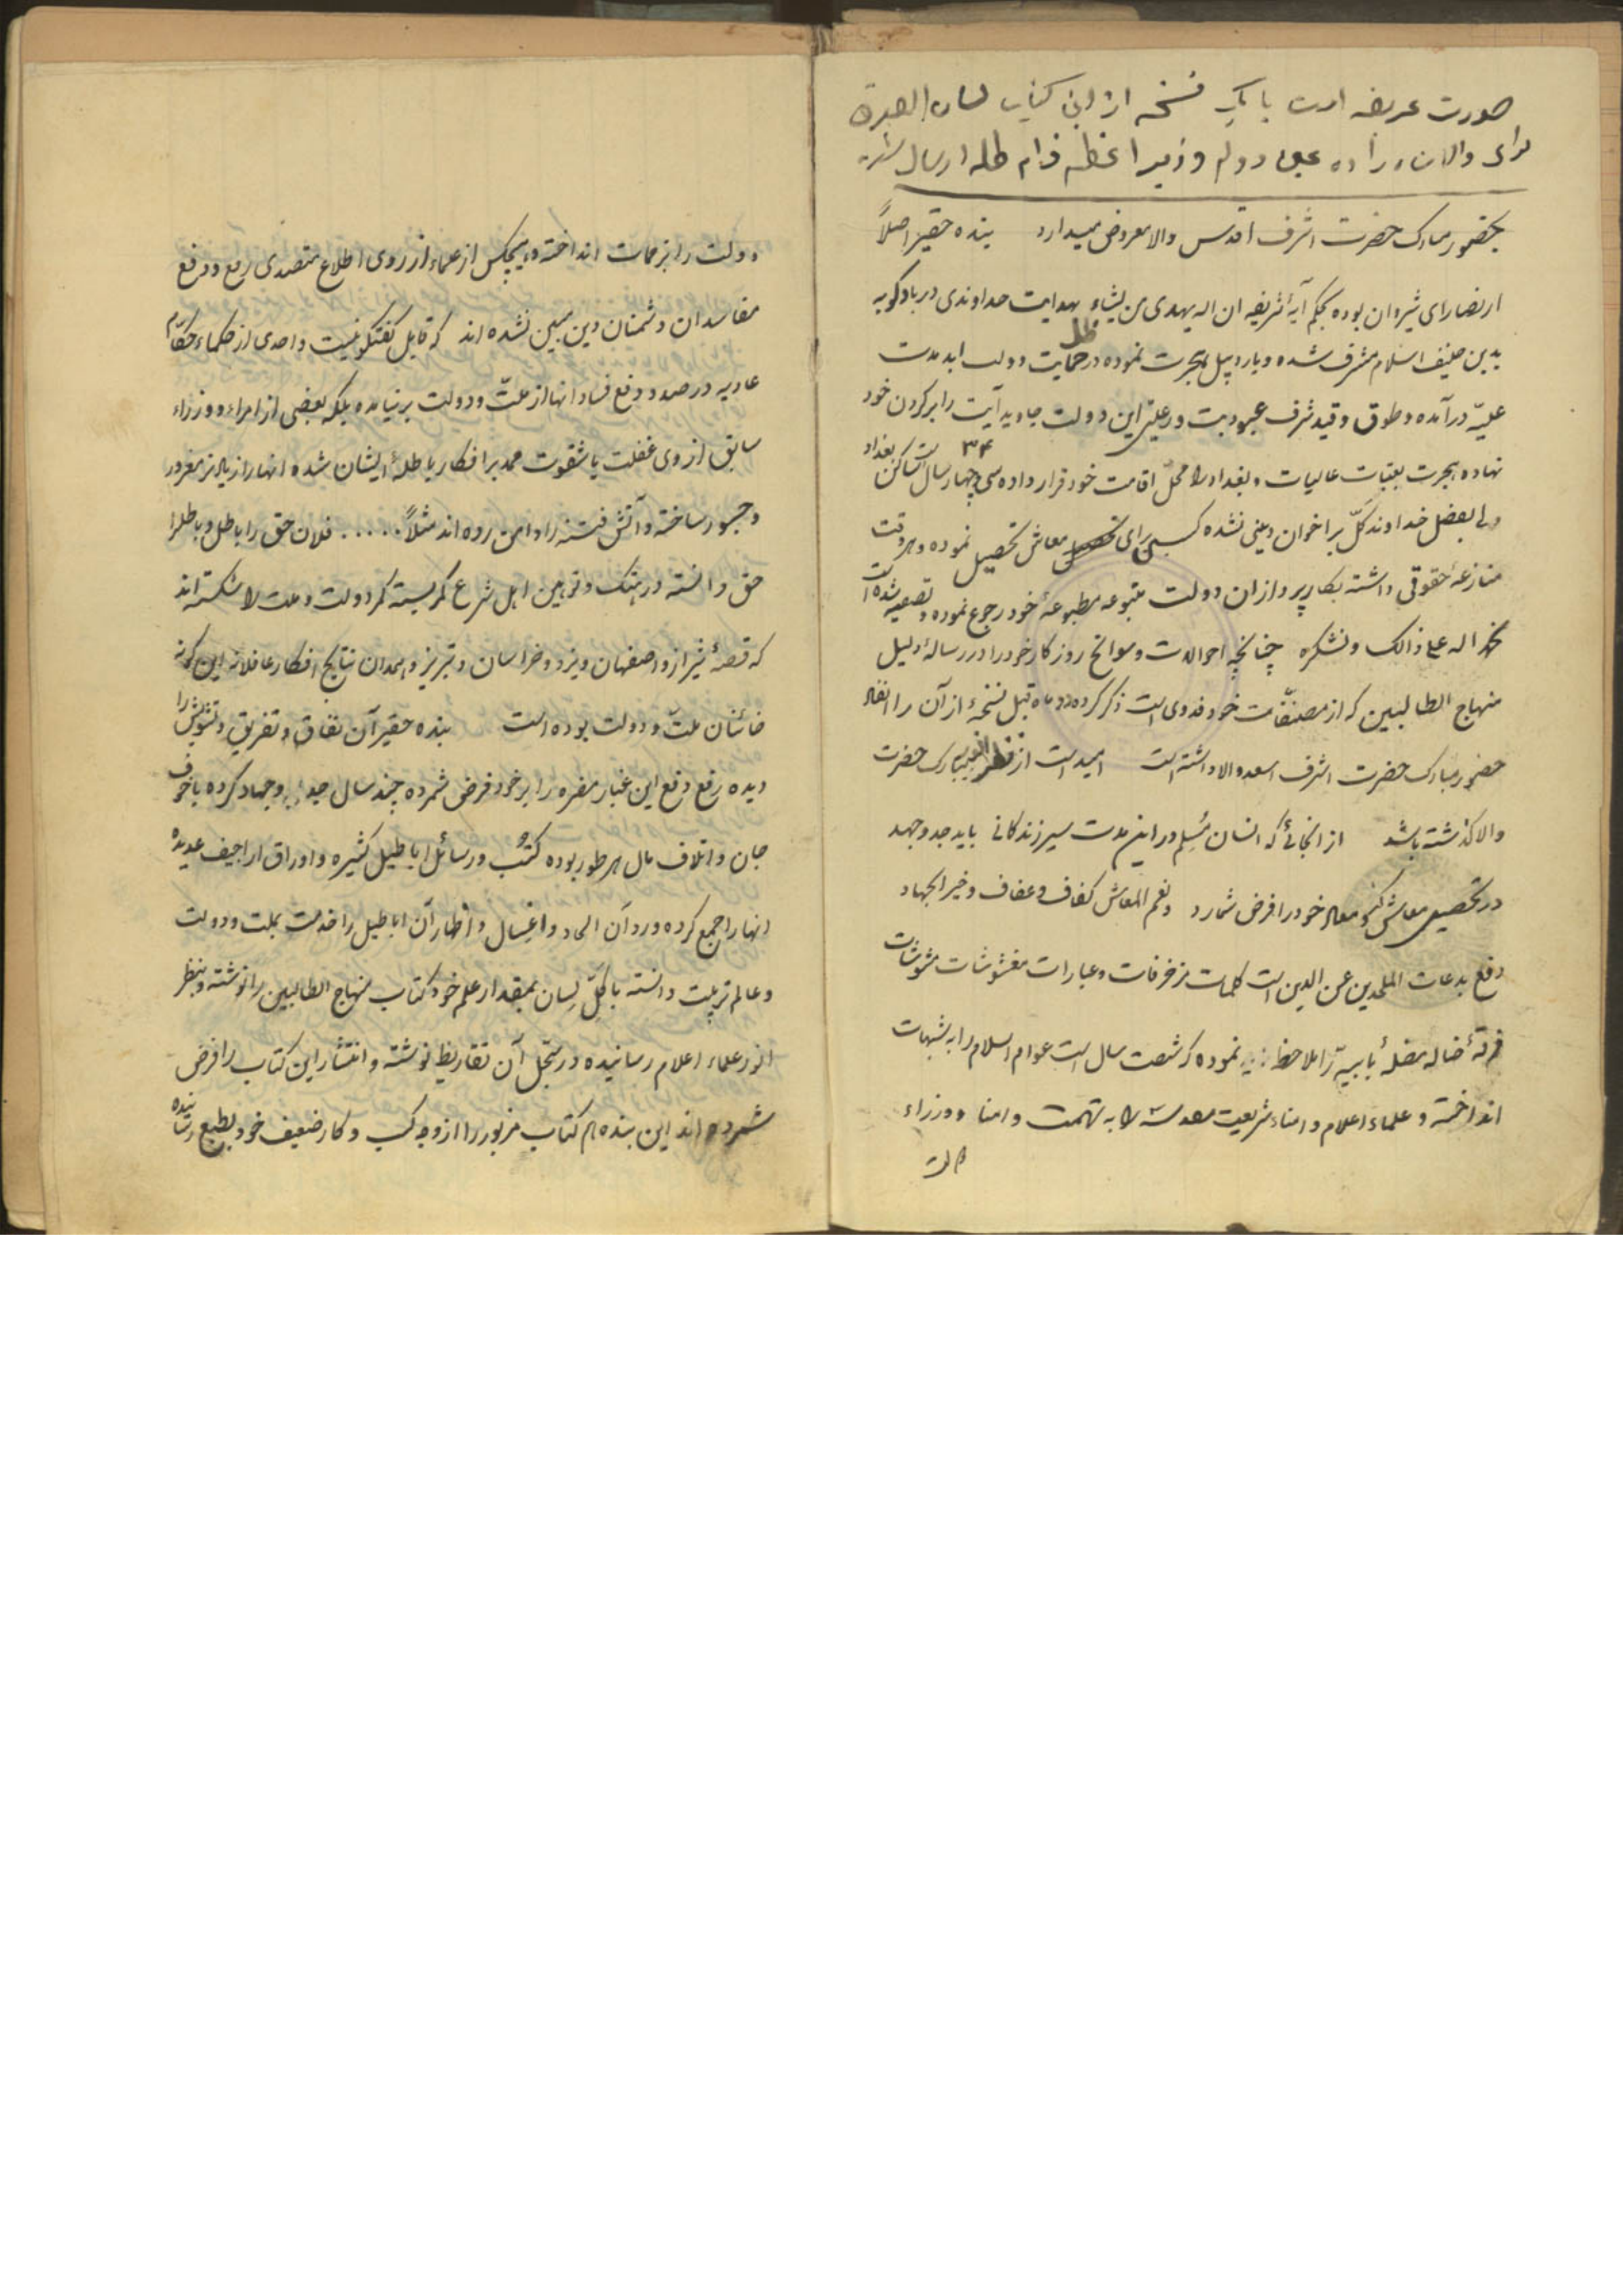 صورت عریضه است با یک نسخه از این کتاب لسان الصدق
برای والا شاهزاده عین دوله وزیر اعظم دام ظله ارسال شد
بحضور مبارک حضرت اشرف اقدس والا معروض میدارد بنده حقیر اصلاً
از نصارای شیروان بوده بحکم آیهٔ شریفه ان اله یهدی من یشاء بهدایت خداوندی در بادکوبه
بدین حنیف اسلام مشرف شده و باردبیل هجرت نموده در ظل حمایت دولت ابد مدت
علیّه درآمده و طوق و قید شرف عبودیت و رعیتی این دولت جاوید آیت را بر کردن خود
نهاده هجرت بعتبات عالیات و بغداد را محلّ اقامت خود قرار داده سی و چهار سال ۳۴ است ساکن بغداد
ولی بفضل خداوند کلّ بر اخوان دینی نشده کسبی برای معاش تحصیل نموده و هر وقت
منازعهٔ حقوقی داشته بکارپردازان دولت متبوعه مطبوعهٔ خود رجوع نموده و تصفیه شده است
نحمد اله علی ذالک و نشکره چنانچه احوالات و سوانح روزکار خود را در رسالهٔ دلیل
منهاج الطالبین که از مصنفّات خود فدوی است ذکر کرده دو ماه قبل نسخهٔ از آن را انفاذ
حضور مبارک حضرت اشرف اسعد والا داشته است امید است از نظر مبارک حضرت
والا کذشته باشد از انجائی که انسان مُسِلم در این مدت سیر زندکانی باید جد و جهد
در تحصیل معاش خود را فرض شمارد و نعم المعاش کفاف و عفاف و خیر الجهاد
دفع بدعات الملحدین عن الدین است کلمات مزخرفات و عبارات مغشوشات مشوشات
فرقهٔ ضاله مضلهٔ بابیّه را ملاحظه نموده که شصت سال است عوام اسلام را به شبهات
انداخته و علماء اعلام و امناء شریعت مقدسه را به تهمت و امنا و وزراء
دولت را بزحمات انداخته و هیچکس از علماء از روی اطلاع متصدی رفع و دفع
مفاسدان و شمنان دین مبین نشده اند که قابل کفتکو نیست واحدی از حکماء حکّام
عادیه در صدد دفع فساد انها از ملتّ و دولت برنیامده بلکه بعضی از امراء و وزراء
سابق از وی غفلت یا شقوت ممد بر افکار باطلهٔ ایشان شده انها را زیاد تر مغرور
و جسور ساخته و آتش فتنه را دامن زده اند مثلاً . . . . . . فلان حق را باطل و باطلرا
حق دانسته در هتک و توهین اهل شرع کمر بسته کمر دولت و ملت را شکسته اند
که قصهٔ شیراز و اصفهان و یزد و خراسان و تبریز و همدان نتایج افکار عاقلانه این کونه
خائنان ملتّ و دولت بوده است بنده حقیر آن نفاق و تفریق و تشویش را
دیده رفع و دفع این غبار مضره را بر خود فرض شمرده چند سال جد و جهاد کرده با خوف
جان و اتلاف مال هر طور بوده کتُب و رسائل اباطیل کثیره و اوراق اراجیف عدیدهٔ
انها را جمع کرده و رد آن الحاد و اغسال و اظهار آن اباطیل را خدمت بملت و دولت
و عالم تربیت دانسته با کلّ لِسان بمقدار علم خود کتاب منهاج الطالبین را نوشته و بنظر
انور علماء اعلام رسانیده در سجّل آن تقاریظ نوشته و انتشار این کتاب را فرض
شمرده اند این بنده هم کتاب مزبور را از وجه کسب و کار ضعیف خود بطبع رسانیده